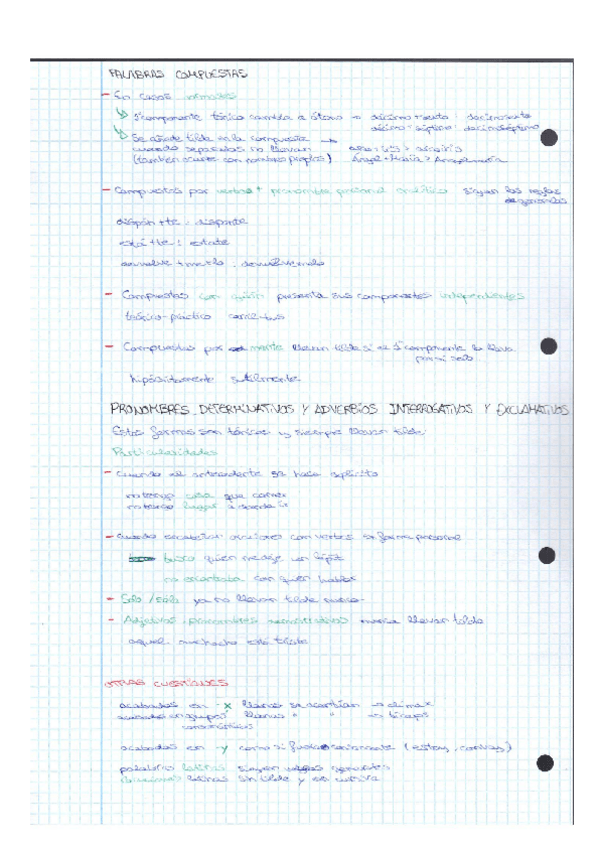 PALABRAS COMPUESTAS
- En casos normales
1º componente tónico cambia a átono → décimo + sexto: decimosexto
décimo + séptimo: decimoséptimo
Se añade tilde en la compuesta →
cuando separados no llevan
(también ocurre con nombres propios) Ángel + María > Angelmaría
- Compuestos por verbos + pronombre personal enclítico siguen las reglas
generales
dispón + te: disponte
está + te: estate
devuelve + me + lo: devuélvemelo
- Compuestos con guión presenta sus componentes independientes
teórico-práctico
- Compuestos por mente llevan tilde si el 1º componente la lleva
por si solo
sutilmente
PRONOMBRES, DETERMINATIVOS Y ADVERBIOS INTERROGATIVOS Y EXCLAMATIVOS
Estas formas son tónicas y siempre llevan tilde.
Particularidades
- Cuando el antecedente se hace explícito
no tengo casa que comer
no tengo lugar a donde ir
- Cuando encabezan oraciones con verbos en forma personal
busco quien me deje un lápiz
no encontraba con quien hablar
- Solo / solo ya no llevan tilde nunca
- Adjetivos, pronombres demostrativos nunca llevan tilde
aquel muchacho está triste
OTRAS CUESTIONES
acabados en -x llanas se acentúan → clímax
acabados en grupos llanas " " → bíceps
consonánticos
acabadas en -y como si fuese consonante (estoy, convoy)
palabras latinas siguen reglas generales
locuciones latinas sin tilde y en cursiva